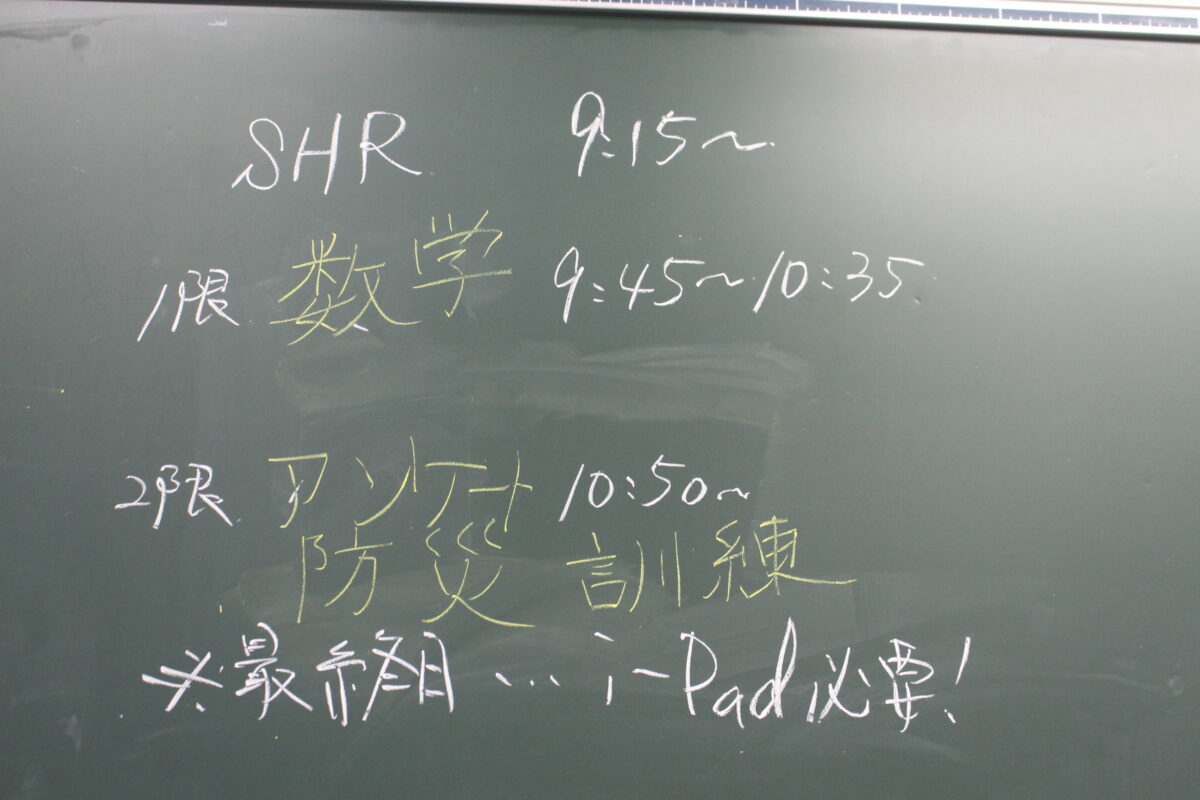 SHR 9:15〜
1限 数学 9:45〜10:35
2限 アンケート 10:50〜
防災訓練
※最終日…i-Pad必要!